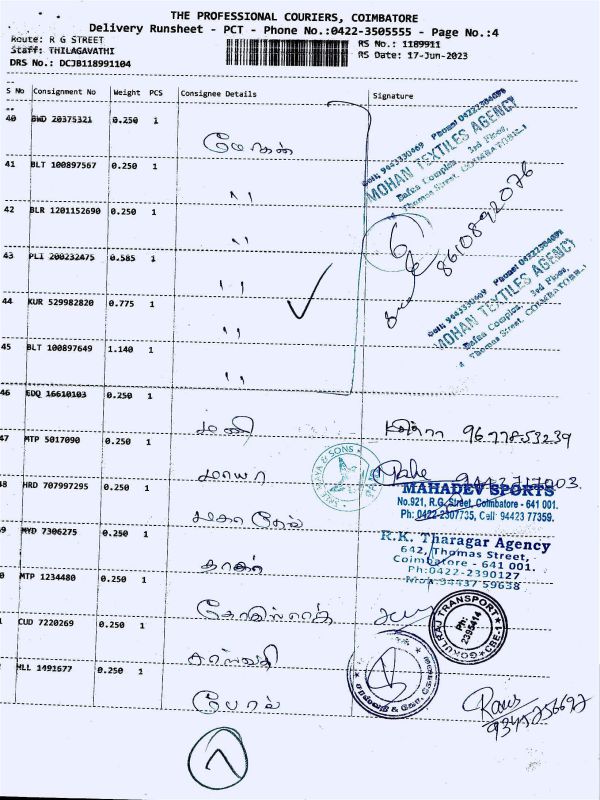 THE PROFESSIONAL COURIERS, COIMBATORE
Delivery Runsheet - PCT - Phone No.:0422-3505555 - Page No.:4
Route: R G STREET
RS No.: 1189911
Staff: THILAGAVATHI
RS Date: 17-Jun-2023
DRS No.: DCJB118991104
S No Consignment No Weight PCS Consignee Details Signature
40 BWD 20375321 0.250 1
MOHAN TEXTILES AGENCY
3rd Floor,
Thomas Street, COIMBATORE-1
41 BLT 100897567 0.250 1 "
42 BLR 1201152690 0.250 1 "
8610892076
43 PLI 200232475 0.585 1 "
MOHAN TEXTILES AGENCY
3rd Floor,
Thomas Street, COIMBATORE-1
44 KUR 529982820 0.775 1 "
45 BLT 100897649 1.140 1 "
46 EDQ 16610103 0.250 1 மணி 9677853239
47 MTP 5017090 0.250 1 மாயா
48 HRD 707997295 0.250 1 மகாதேவ்
MAHADEV SPORTS
No.921, R.G. Street, Coimbatore - 641 001.
Ph: 0422-2307735, Cell: 94423 77359.
9 MYD 7306275 0.250 1
R.K. Tharagar Agency
642, Thomas Street,
Coimbatore - 641 001.
Ph:0422-2390127
Mob:94437 59638
0 MTP 1234480 0.250 1 கோகுல்ராஜ்
GOKULRAJ TRANSPORT
Ph:
2395414
CBE-1
CUD 7220269 0.250 1
MLL 1491677 0.250 1
9345756697
7